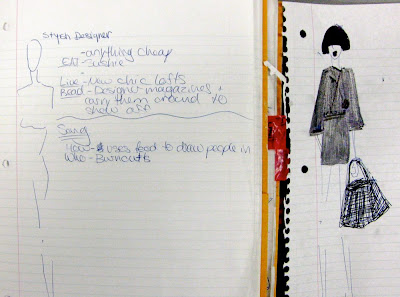 Stylish Designer
-anything cheap
EAT- Sushie
Live- New chic lofts
Read- Designer magazines +
carry them around to
show off
Song
How- uses food to draw people in
Who- Burncutts